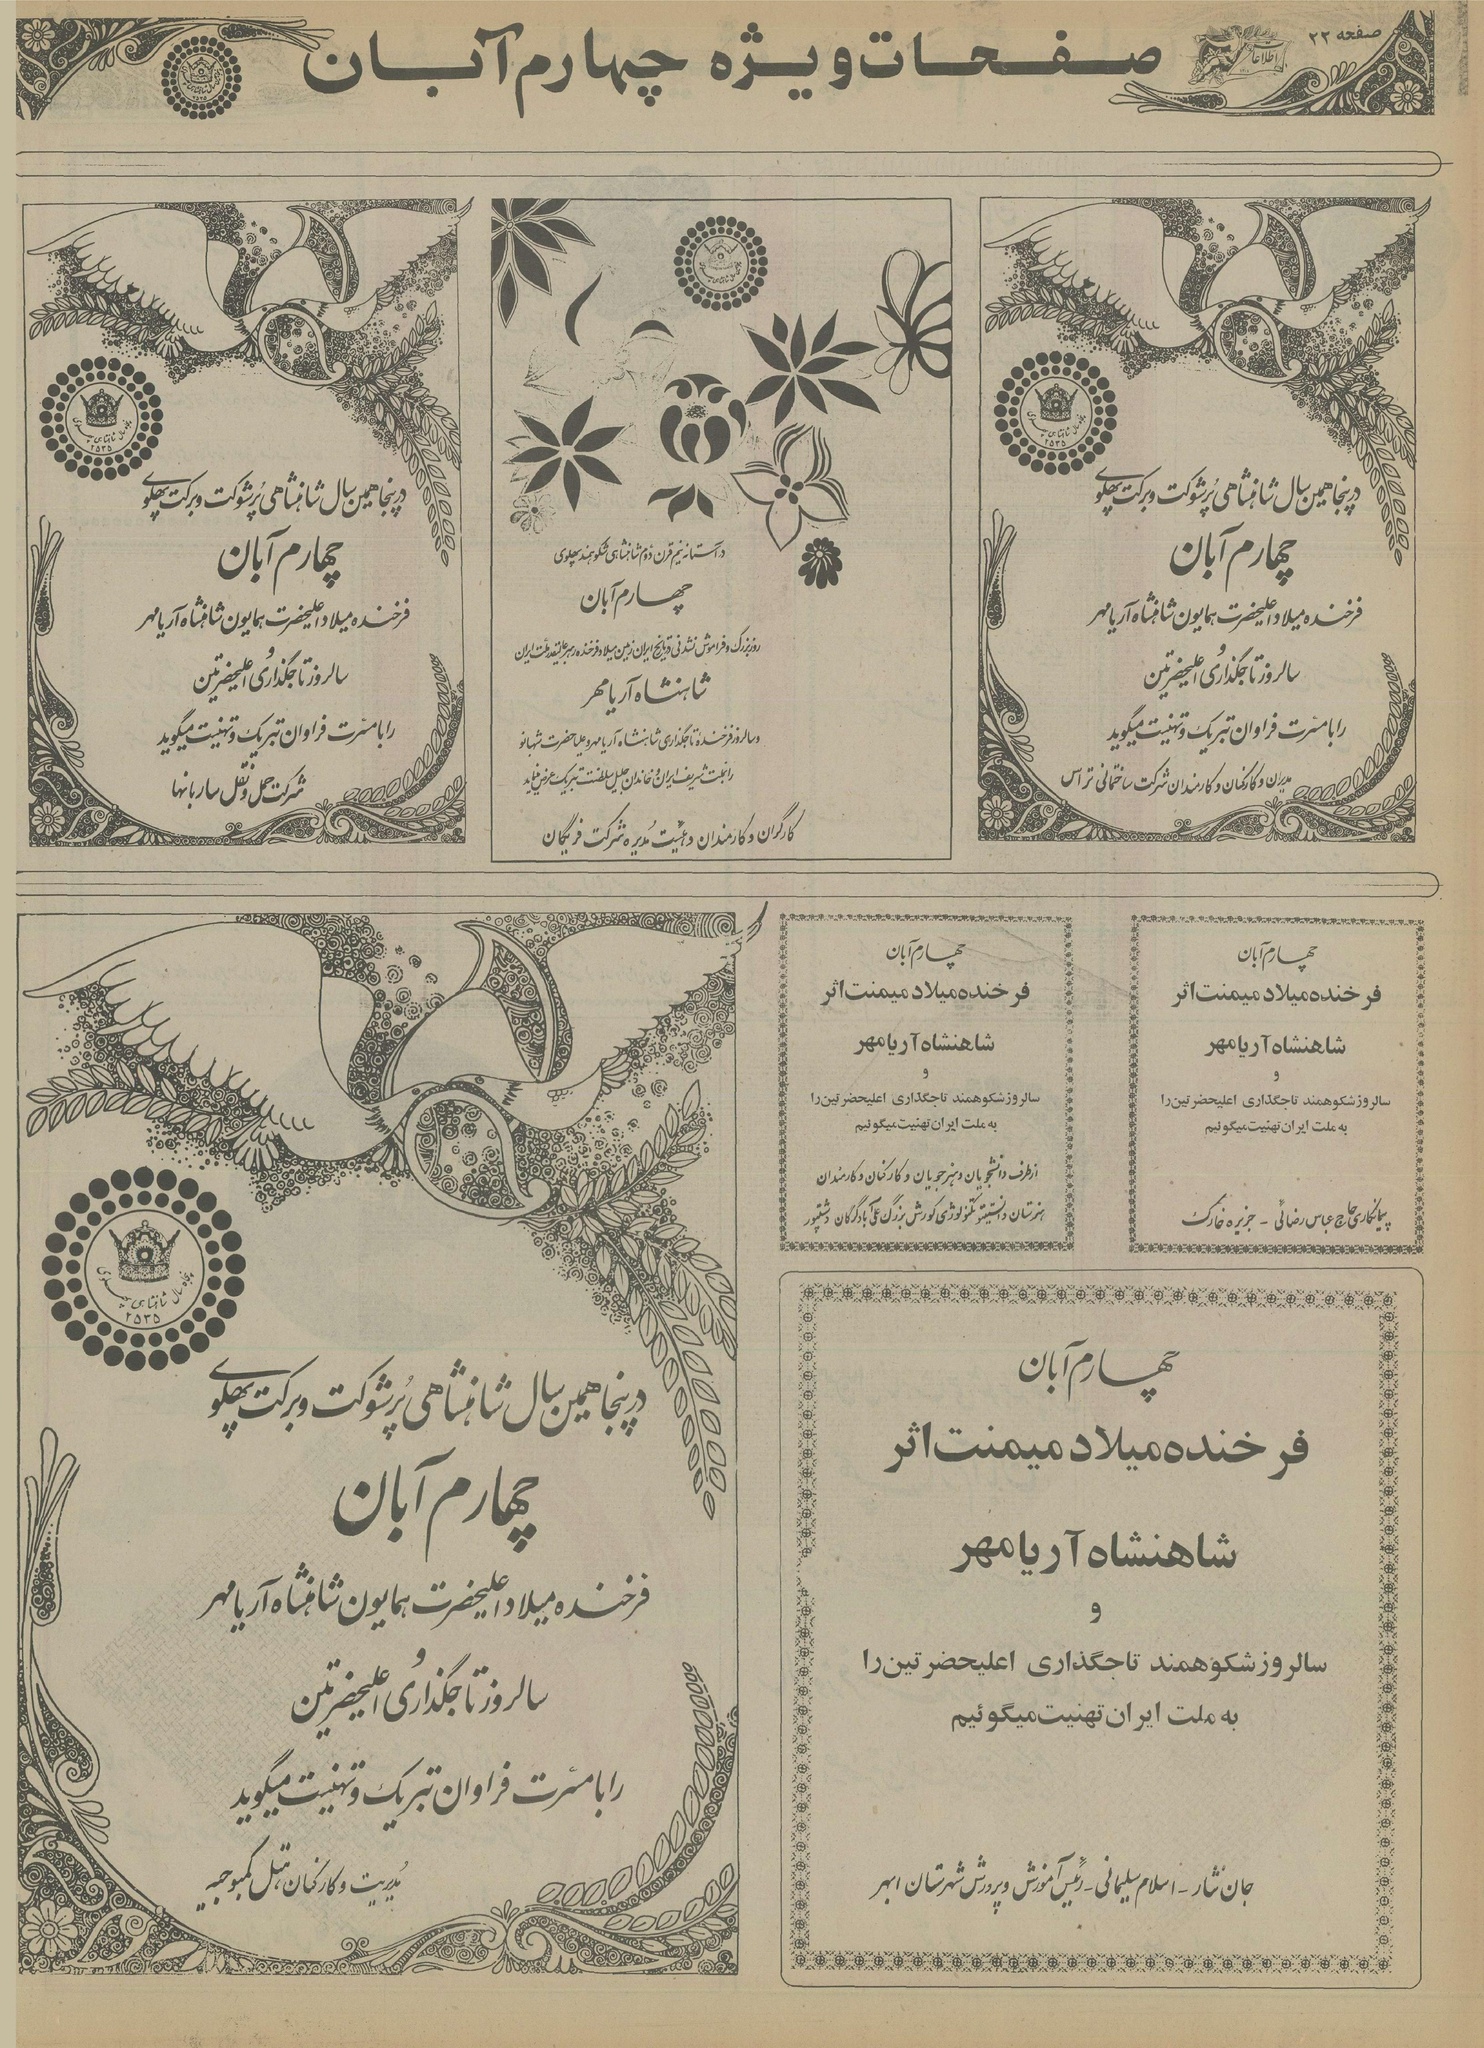 صفحه ۲۲
اطلاعات
صفحات ویژه چهارم آبان
در پنجاهمین سال شاهنشاهی پرشوکت و برکت پهلوی
چهارم آبان
فرخنده میلاد اعلیحضرت همایون شاهنشاه آریامهر
و
سالروز تاجگذاری اعلیحضرتین
را با مسرت فراوان تبریک و تهنیت میگوید
مدیران و کارکنان و کارمندان شرکت ساختمانی تراس
در آستانه نیم قرن دوم شاهنشاهی شکوهمند پهلوی
چهارم آبان
روز بزرگ و فراموش نشدنی تاریخ ایران زمین میلاد فرخنده رهبر عالیقدر ملت ایران
شاهنشاه آریامهر
و سالروز فرخنده تاجگذاری شاهنشاه آریامهر و علیاحضرت شهبانو
را بملت شریف ایران و خاندان جلیل سلطنت تبریک عرض مینماید
کارگران و کارمندان و هیئت مدیره شرکت
در پنجاهمین سال شاهنشاهی پرشوکت و برکت پهلوی
چهارم آبان
فرخنده میلاد اعلیحضرت همایون شاهنشاه آریامهر
و
سالروز تاجگذاری اعلیحضرتین
را با مسرت فراوان تبریک و تهنیت میگوید
شرکت حمل و نقل ساربانها
چهارم آبان
فرخنده میلاد میمنت اثر
شاهنشاه آریامهر
و
سالروز شکوهمند تاجگذاری اعلیحضرتین را
به ملت ایران تهنیت میگوئیم
پیمانکاری حاج عباس رضائی - جزیره خارک
چهارم آبان
فرخنده میلاد میمنت اثر
شاهنشاه آریامهر
و
سالروز شکوهمند تاجگذاری اعلیحضرتین را
به ملت ایران تهنیت میگوئیم
از طرف دانشجویان و هنرجویان و کارکنان و کارمندان
هنرستان و انستیتو تکنولوژی کورش بزرگ علی آباد گرگان
چهارم آبان
فرخنده میلاد میمنت اثر
شاهنشاه آریامهر
و
سالروز شکوهمند تاجگذاری اعلیحضرتین را
به ملت ایران تهنیت میگوئیم
جان نثار - اسلام سلیمانی - رئیس آموزش و پرورش شهرستان ابهر
پنجاه سال شاهنشاهی پهلوی
۲۵۳۵
در پنجاهمین سال شاهنشاهی پرشوکت و برکت پهلوی
چهارم آبان
فرخنده میلاد اعلیحضرت همایون شاهنشاه آریامهر
و
سالروز تاجگذاری اعلیحضرتین
را با مسرت فراوان تبریک و تهنیت میگوید
مدیریت و کارکنان هتل کمبوجیه